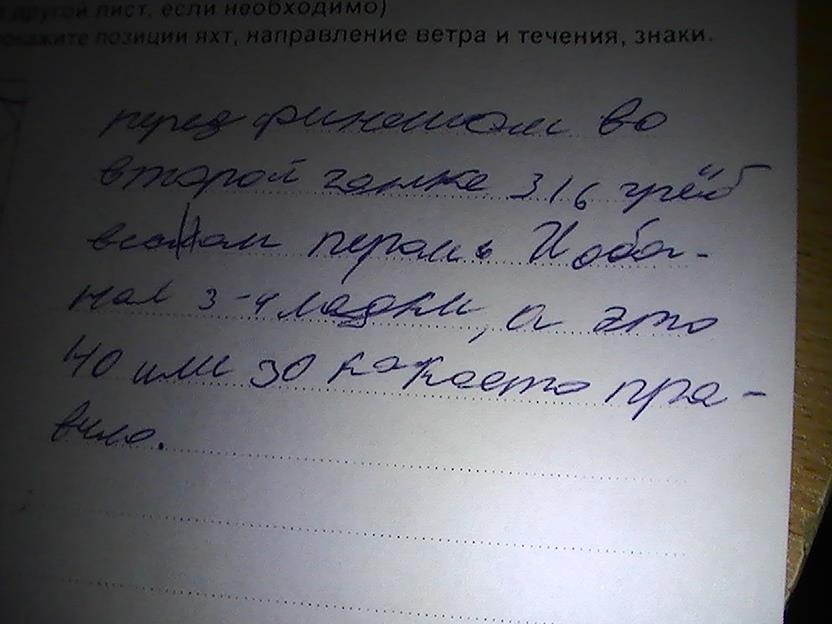 другой лист, если необходимо)
окажите позиции яхт, направление ветра и течения, знаки.
перед финешом во
второй гонке 316 грёб
пером и обог-
нал 3-4 лодки, а это
40 или 30 какоето пра-
вило.